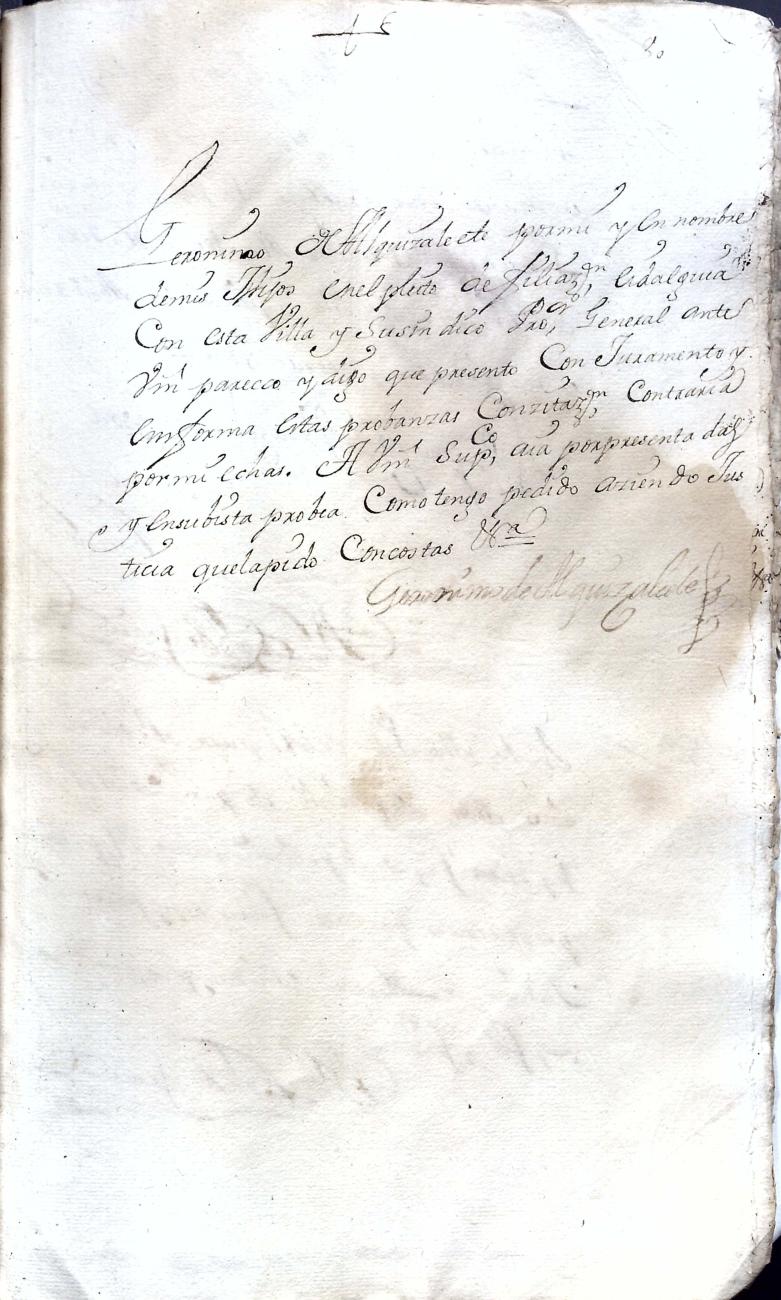 Geronimo de Alquizalete por mi y en nombre
demis Ihijos enel pleito de filiazon, eidalguia
Con esta Villa y Susindico Pror, General ante
Vm parezco y digo que presento Con Juramento y
en forma estas probanzas Conzitazon Contraria
por mi echas. A Vm Supco, aia por presentadas
y ensubista probea Como tengo pedido aziendo Jus
ticia quelapido Concostas &a
Geronimo de Alquizalete